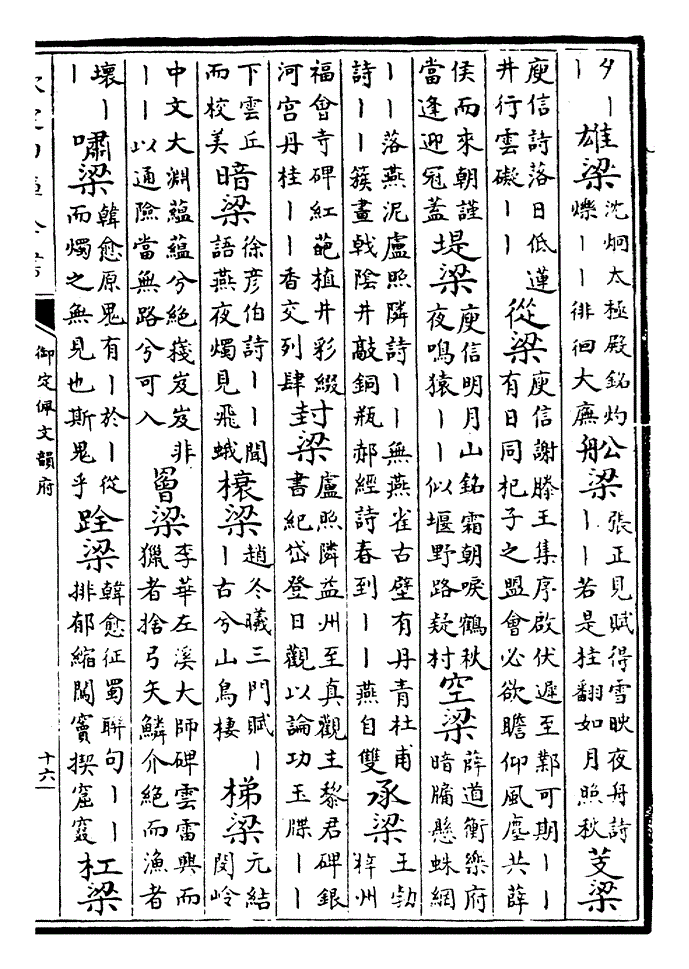 夕丨
丨
雄梁
沈炯太極殿銘灼
爍丨丨徘徊大廡
舩梁
張正見賦得雪映夜舟詩
丨丨若是桂翻如月照秋
芰梁
庾信詩落日低蓮
井行雲礙丨丨
從梁
庾信謝滕王集序啟伏遲至鄴可期丨丨
有日同杞子之盟會必欲瞻仰風塵共薛
侯而來朝謹
當逢迎冠蓋
堤梁
庾信明月山銘霜朝唳鶴秋
夜鳴猿丨丨似堰野路疑村
空梁
薛道衡樂府
暗牖懸蛛網
丨丨落燕泥盧照隣詩丨丨無燕雀古壁有丹青杜甫
詩丨丨簇畫戟陰井敲銅瓶郝經詩春到丨丨燕自雙
承梁
王勃
梓州
福會寺碑紅葩植井彩綴
河宫丹桂丨丨香交列肆
封梁
盧照隣益州至真觀主黎君碑銀
書紀岱登日觀以論功玉牒丨丨
下雲丘
而校美
暗梁
徐彥伯詩丨丨聞
語燕夜燭見飛蛾
榱梁
趙冬曦三門賦丨
丨古兮山鳥棲
梯梁
元結
閔岭
中文大淵蘊蘊兮絶棧岌岌非
丨丨以通險當無路兮可入
罾梁
李華左溪大師碑雲雷興而
獵者捨弓矢鱗介絶而漁者
壞丨
丨
嘯梁
韓愈原鬼有丨於丨從
而燭之無見也斯鬼乎
跧梁
韓愈征蜀聯句丨丨
排郁縮闖竇揳窟窡
杠梁
御定佩文韻府
十六